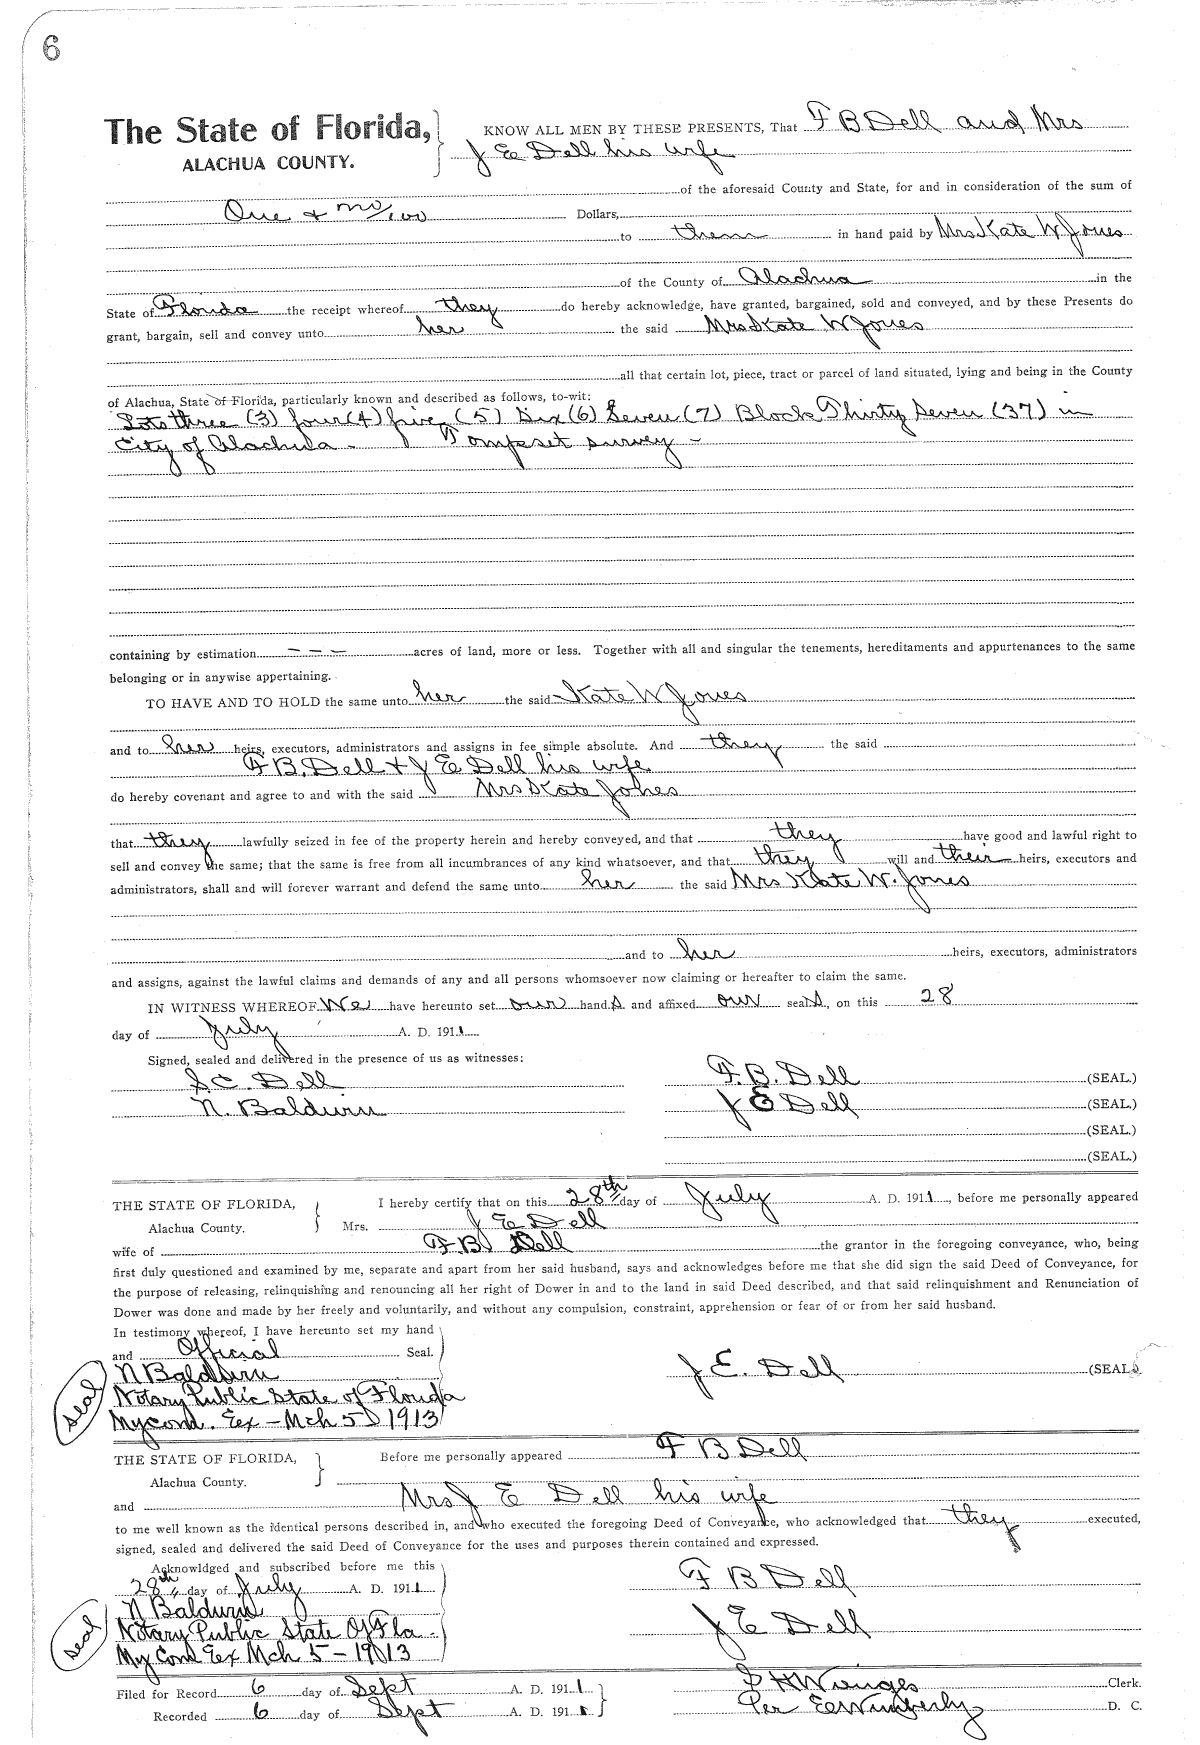 6
The State of Florida, KNOW ALL MEN BY THESE PRESENTS, That F B Dell and Mrs
ALACHUA COUNTY. J E Dell his wife
of the aforesaid County and State, for and in consideration of the sum of
One & no/100 Dollars,
to them in hand paid by Mrs Kate W Jones
of the County of Alachua in the
State of Florida the receipt whereof they do hereby acknowledge, have granted, bargained, sold and conveyed, and by these Presents do
grant, bargain, sell and convey unto her the said Mrs Kate W Jones
all that certain lot, piece, tract or parcel of land situated, lying and being in the County
of Alachua, State of Florida, particularly known and described as follows, to-wit:
Lots three (3) four (4) five (5) Six (6) Seven (7) Block Thirty Seven (37) in
City of Alachua - Tompset survey -
containing by estimation - - - acres of land, more or less. Together with all and singular the tenements, hereditaments and appurtenances to the same
belonging or in anywise appertaining.
TO HAVE AND TO HOLD the same unto her the said Kate W Jones
and to her heirs, executors, administrators and assigns in fee simple absolute. And they the said
F B. Dell & J E Dell his wife
do hereby covenant and agree to and with the said Mrs Kate Jones
that they lawfully seized in fee of the property herein and hereby conveyed, and that they have good and lawful right to
sell and convey the same; that the same is free from all incumbrances of any kind whatsoever, and that they will and their heirs, executors and
administrators, shall and will forever warrant and defend the same unto her the said Mrs Kate W. Jones
and to her heirs, executors, administrators
and assigns, against the lawful claims and demands of any and all persons whomsoever now claiming or hereafter to claim the same.
IN WITNESS WHEREOF We have hereunto set our hands and affixed our seals, on this 28
day of July A. D. 1911
Signed, sealed and delivered in the presence of us as witnesses:
S. C. Dell F. B. Dell (SEAL.)
N. Baldwin J E Dell (SEAL.)
(SEAL.)
(SEAL.)
THE STATE OF FLORIDA, I hereby certify that on this 28th day of July A. D. 1911, before me personally appeared
Alachua County. Mrs. J E Dell
wife of F B Dell the grantor in the foregoing conveyance, who, being
first duly questioned and examined by me, separate and apart from her said husband, says and acknowledges before me that she did sign the said Deed of Conveyance, for
the purpose of releasing, relinquishing and renouncing all her right of Dower in and to the land in said Deed described, and that said relinquishment and Renunciation of
Dower was done and made by her freely and voluntarily, and without any compulsion, constraint, apprehension or fear of or from her said husband.
In testimony whereof, I have hereunto set my hand
and Official Seal.
N Baldwin J E. Dell (SEAL.)
Seal Notary Public State of Florida
My Com. Ex - Mch 5 1913
THE STATE OF FLORIDA, Before me personally appeared F B Dell
Alachua County.
and Mrs J E Dell his wife
to me well known as the identical persons described in, and who executed the foregoing Deed of Conveyance, who acknowledged that they executed,
signed, sealed and delivered the said Deed of Conveyance for the uses and purposes therein contained and expressed.
Acknowldged and subscribed before me this
28th day of July A. D. 1911 F B Dell
N Baldwin
Seal Notary Public State Of Fla J E Dell
My Com Ex Mch 5 - 1913
Filed for Record 6 day of Sept A. D. 1911 Clerk.
Recorded 6 day of Sept A. D. 1911 Per E Wimberly D. C.